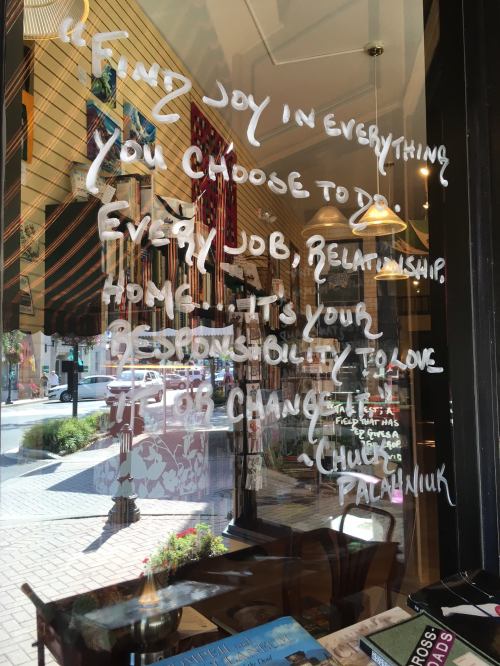 "FIND JOY IN EVERYTHING
YOU CHOOSE TO DO.
EVERY JOB, RELATIONSHIP,
HOME... IT'S YOUR
RESPONSIBILITY TO LOVE
IT OR CHANGE IT"
~CHUCK
PALAHNIUK
FIELD THAT HAS
ROSS-
ADS